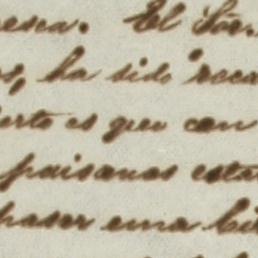 resca. El Sõr.
, ha sido reca
erto es que con
paisanos esta
haser una bi